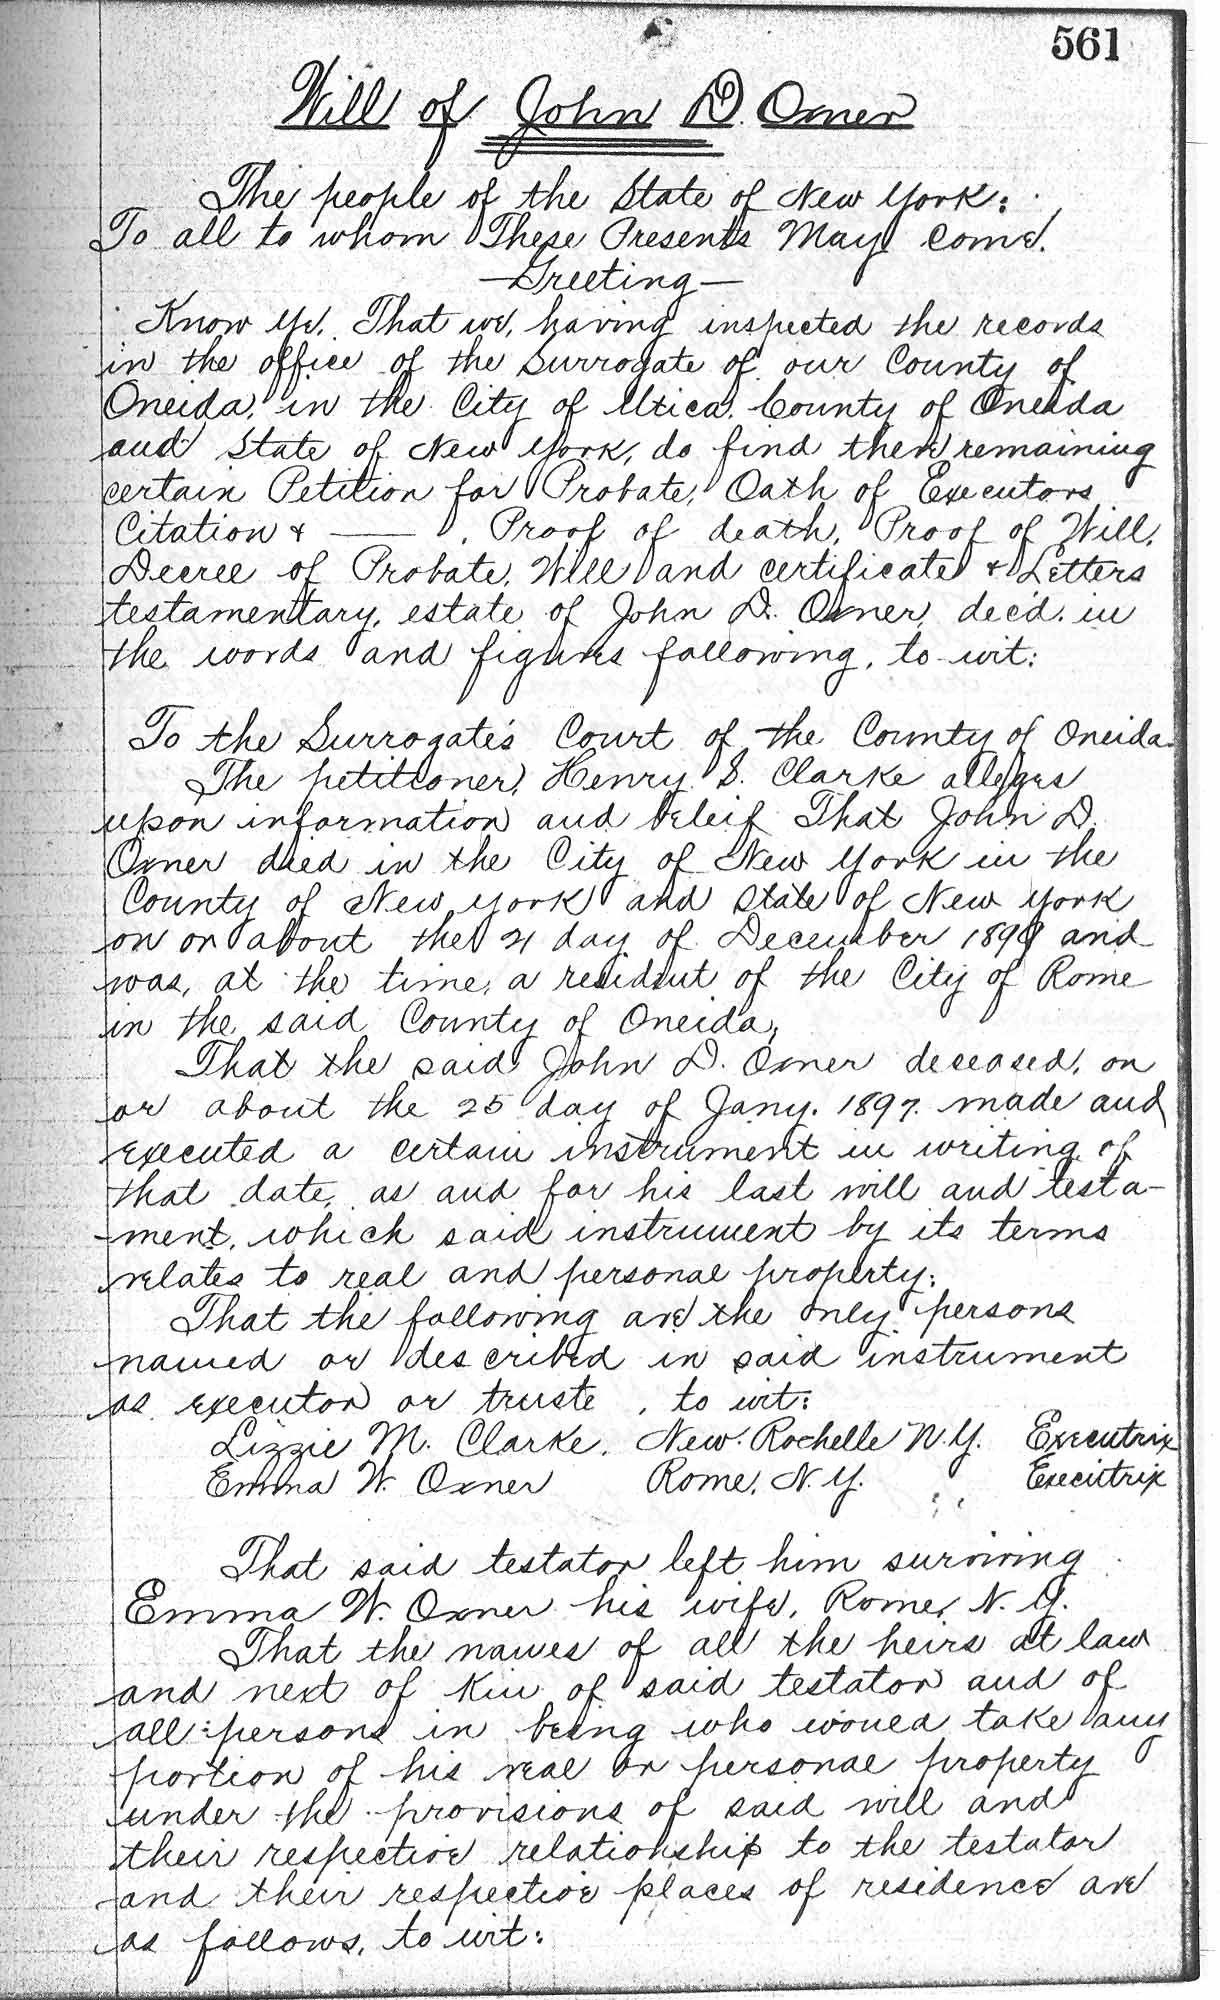 561
Will of John D. Oxner
The people of the State of New York:
To all to whom These Presents May Come.
—Greeting—
Know Ye, That we, having inspected the records
in the office of the Surrogate of our County of
Oneida, in the City of Utica, County of Oneida
and State of New York, do find there remaining
certain Petition for Probate, Oath of Executors
Citation & —— . Proof of death, Proof of Will,
Decree of Probate, Will and certificate & Letters
testamentary, estate of John D. Oxner, dec'd. in
the words and figures following, to wit:
To the Surrogate's Court of the County of Oneida.
The petitioner, Henry S. Clarke alleges
upon information and beleif That John D.
Oxner died in the City of New York in the
County of New York and State of New York
on or about the 21 day of December and
was, at the time, a resident of the City of Rome
in the said County of Oneida,
That the said John D. Oxner deseased, on
or about the 25 day of Jany. 1897. made and
executed a certain instrument in writing of
that date, as and for his last will and testa-
-ment, which said instrument by its terms
relates to real and personal property:
That the following are the only persons
named or described in said instrument
as executor or truste , to wit:
Lizzie M. Clarke, New Rochelle N.Y. Executrix
Emma W. Oxner Rome, N.Y. Executrix
That said testator left him surviving
Emma W. Oxner his wife, Rome, N.Y.
That the names of all the heirs at law
and next of kin of said testator and of
all persons in being who would take any
portion of his real or personal property
under the provisions of said will and
their respective relationship to the testator
and their respective places of residence are
as follows, to wit: